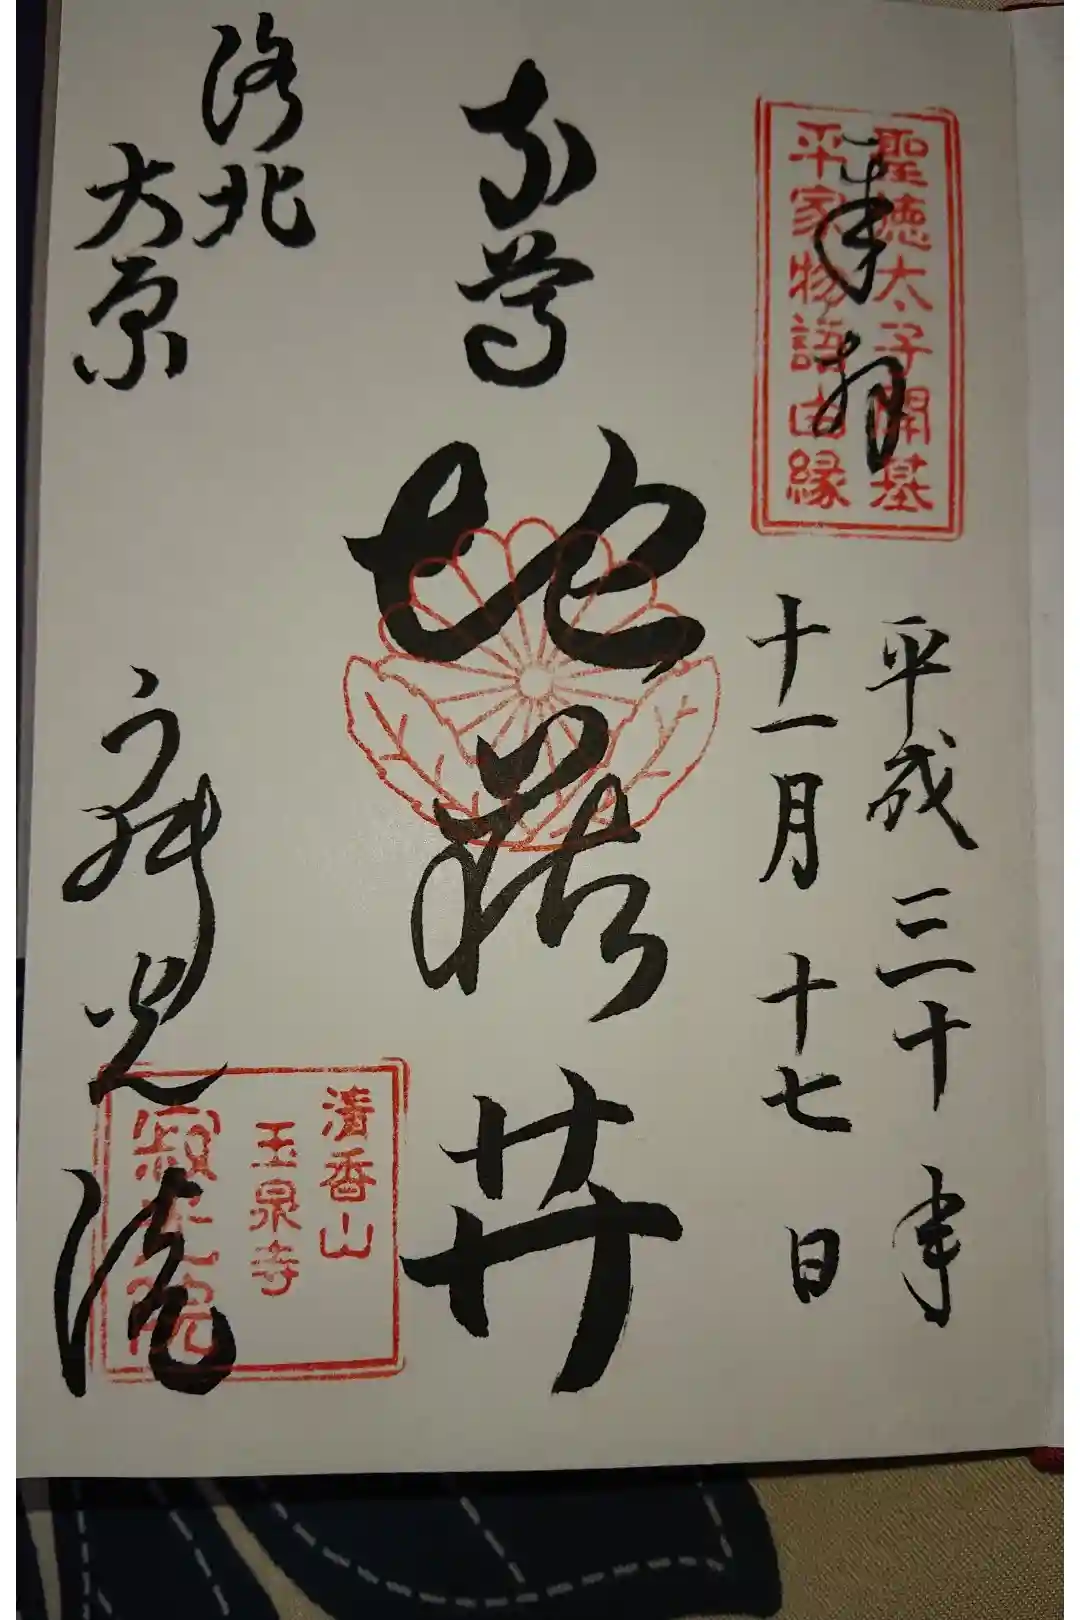 奉拝
聖徳太子開基
平家物語由縁
平成三十年
十一月十七日
本尊
地蔵廾
洛北
大原
寂光院
清香山
玉泉寺
寂光院